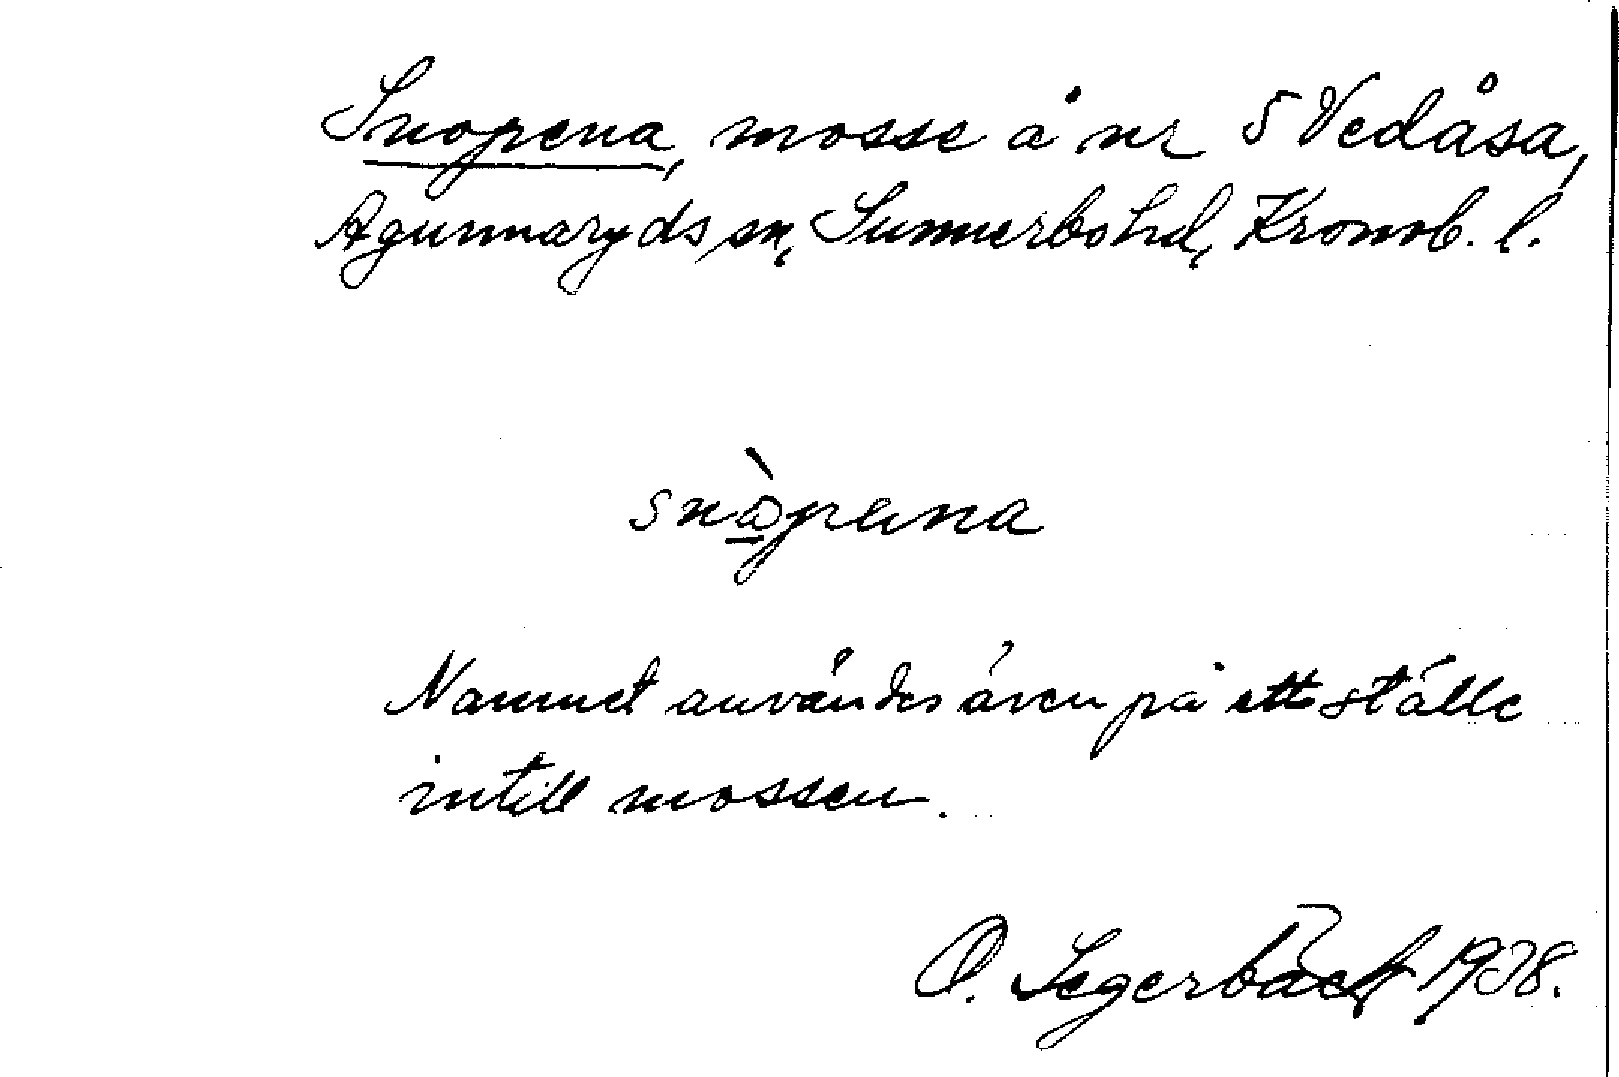 Snopena, mosse å nr 5 Vedåsa,
Agunnaryds sn, Sunnerbo hd, Kronob. l.
snòpena
Namnet användes även på ett ställe
intill mossen.
O. Segerbäck 1938.